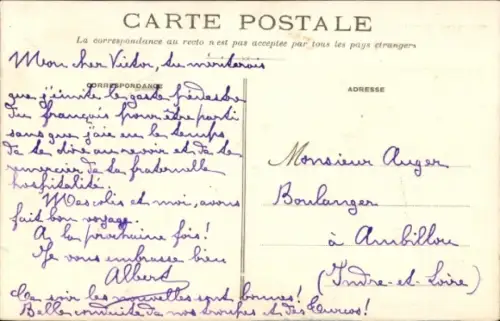 CARTE POSTALE
La correspondance au recto n'est pas acceptée par tous les pays étrangers
Mon cher Victor, tu mériterais
CORRESPONDANCE
que j'imite le geste
du français pour être parti
sans que j'aie eu le temps
de te dire au revoir et de te
remercier de ta fraternelle
hospitalité.
Mes colis et moi, avons
fait bon voyage.
A la prochaine fois!
Je vous embrasse bien
Albert
Ce soir les nouvelles sont bonnes!
Belle conduite de nos troupes et des Turcos!
ADRESSE
Monsieur Auger
Boulanger
à Ambillou
(Indre-et-Loire)